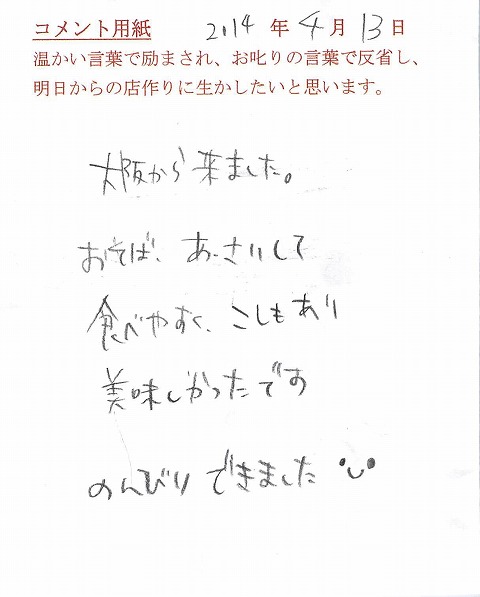 コメント用紙 2014 年 4 月 13 日
温かい言葉で励まされ、お叱りの言葉で反省し、
明日からの店作りに生かしたいと思います。
大阪から来ました。
おそば、あっさりして
食べやすく、こしもあり
美味しかったです
のんびりできました